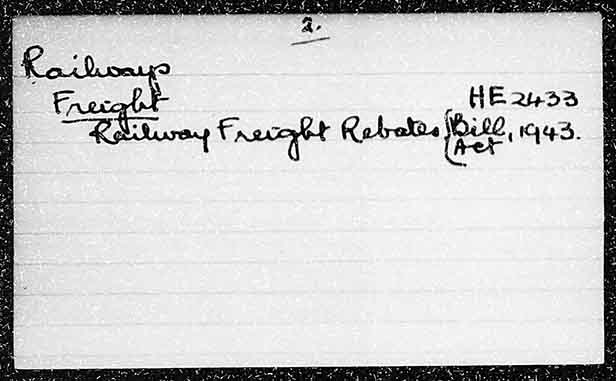 2.
Railways
Freight
HE 2433
Railway Freight Rebates {Bill, 1943.
Act